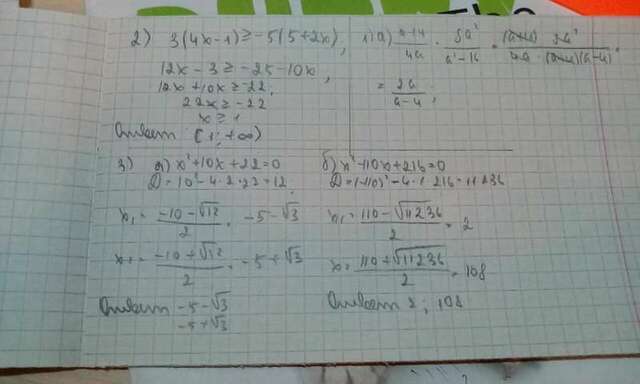 2) 3(4x-1)≥-5(5+2x),
12x-3≥-25-10x,
12x+10x≥-22,
22x≥-22
x≥1
Ответ: [1;+∞)
1) а) a+4/4a · 8a²/a²-16 = (a+4) 8a²/4a·(a+4)(a-4) =
= 2a/a-4;
3) а) x²+10x+22=0
D=10²-4·2·22=12
x₁= -10-√12/2 = -5-√3
x₂= -10+√12/2 = -5+√3
Ответ -5-√3
-5+√3
б) x²-110x+216=0
D=(-110)²-4·1·216=11236
x₁= 110-√11236/2 = 2
x= 110+√11236/2 = 108
Ответ 2; 108
The